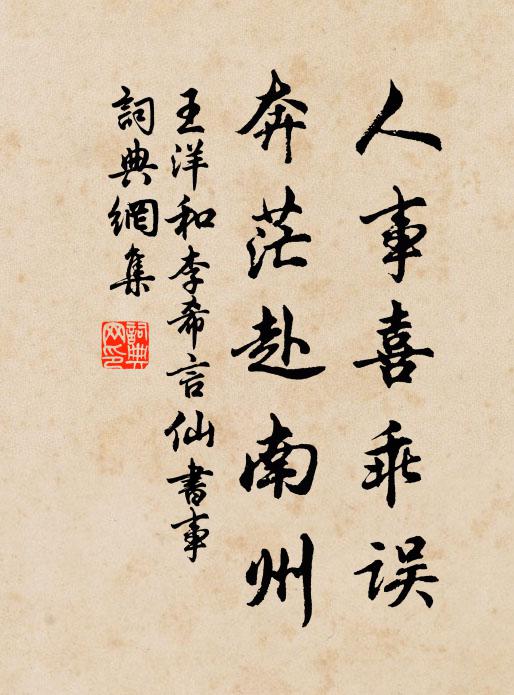 人事喜乖误
奔茫赴南州
王洋和李希言仙書事
詞典網集
詞典網印